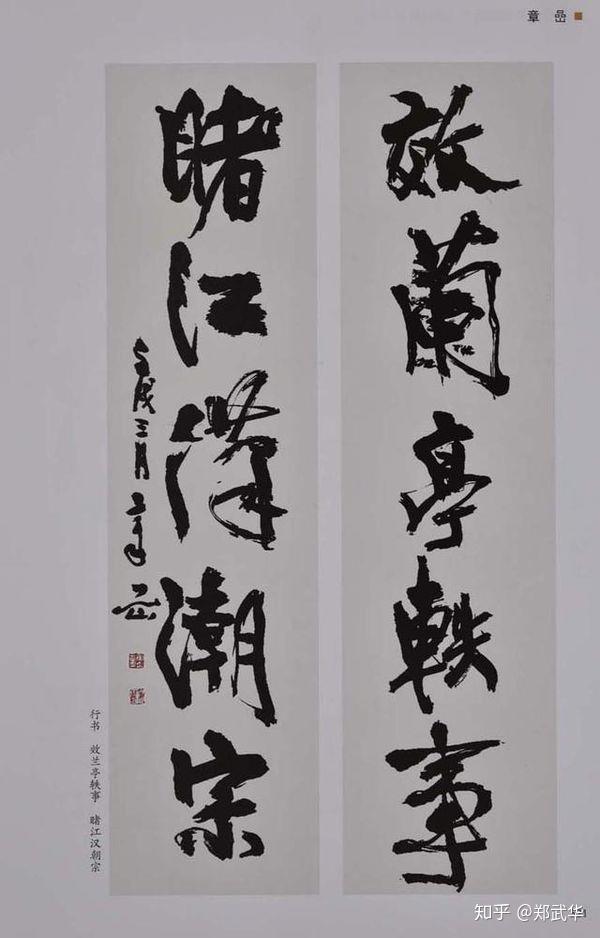 章嵒
效蘭亭軼事
睹江漢潮宗
壬戌三月 章嵒
行书 效兰亭轶事 睹江汉朝宗
知乎 @郑武华